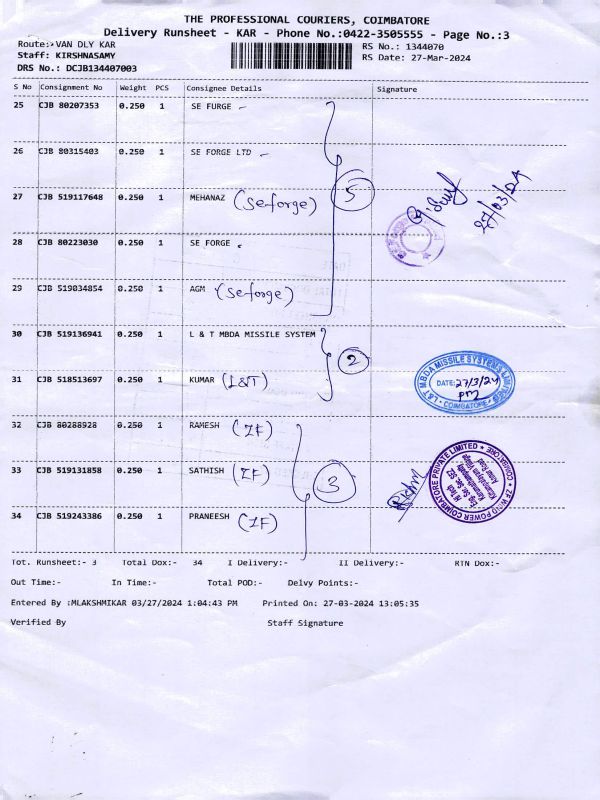 THE PROFESSIONAL COURIERS, COIMBATORE
Delivery Runsheet - KAR - Phone No.:0422-3505555 - Page No.:3
Route:- VAN DLY KAR
Staff: KIRSHNASAMY
DRS No.: DCJB134407003
RS No.: 1344070
RS Date: 27-Mar-2024
S No Consignment No Weight PCS Consignee Details Signature
25 CJB 80207353 0.250 1 SE FURGE
26 CJB 80315403 0.250 1 SE FORGE LTD
27 CJB 519117648 0.250 1 MEHANAZ (Seforge) 5
27/03/24
28 CJB 80223030 0.250 1 SE FORGE
29 CJB 519034854 0.250 1 AGM (Seforge)
30 CJB 519136941 0.250 1 L & T MBDA MISSILE SYSTEM
2
31 CJB 518513697 0.250 1 KUMAR (L&T)
L&T MBDA MISSILE SYSTEMS LIMITED
DATE: 27/3/24
COIMBATORE
32 CJB 80288928 0.250 1 RAMESH (ZF)
33 CJB 519131858 0.250 1 SATHISH (ZF) 3
ZF WIND POWER COIMBATORE PRIVATE LIMITED
COIMBATORE
34 CJB 519243386 0.250 1 PRANEESH (ZF)
Tot. Runsheet:- 3 Total Dox:- 34 I Delivery:- II Delivery:- RTN Dox:-
Out Time:- In Time:- Total POD:- Delvy Points:-
Entered By :MLAKSHMIKAR 03/27/2024 1:04:43 PM Printed On: 27-03-2024 13:05:35
Verified By Staff Signature